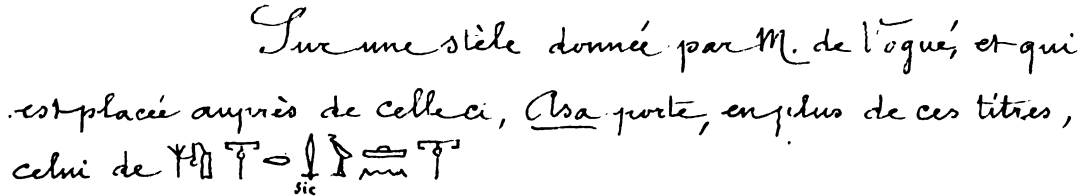 Sur une stèle donnée par M. de Vogué, et qui
est placée auprès de celle ci, Asa porte, en plus de ces titres,
celui de
sic